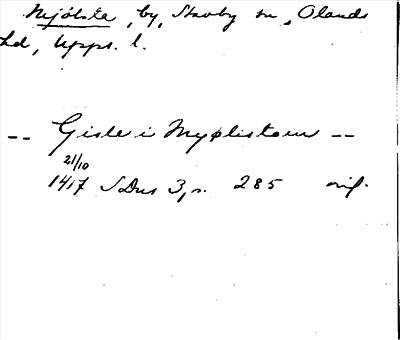 Mjölsta, by, Stavby sn, Olands
hd, Upps. l.
-- Gisle i Myølistom --
21/10
1417 SDns 3, s. 285 orig.